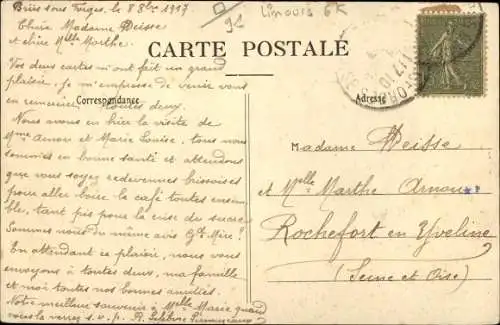 Briis sous Forges, le 8 8bre 1917
Chère Madame Deisse
et chère Mlle Marthe.
Vos deux cartes m'ont fait un grand
plaisir, je m'empresse de venir vous
en remercier toutes deux.
Nous avons eu hier la visite de
Mme Arnou et Marie Louise, tous nous
sommes en bonne santé et attendons
que vous soyez redevenues briissoises
pour aller boire le café toutes ensem
ble, tant pis pour la crise du sucre
Sommes nous du même avis Gde Mère?
En attendant ce plaisir, nous vous
envoyons à toutes deux, ma famille
et moi toutes nos bonnes amitiés.
Notre meilleur souvenir à Mlle Marie quand
vous la verrez s.v.p. R. Lefebvre
91
Limours 6K
CARTE POSTALE
Correspondance
Adresse
Madame Deisse
et Mlle Marthe Arnou
Rochefort en Yveline
(Seine et Oise)